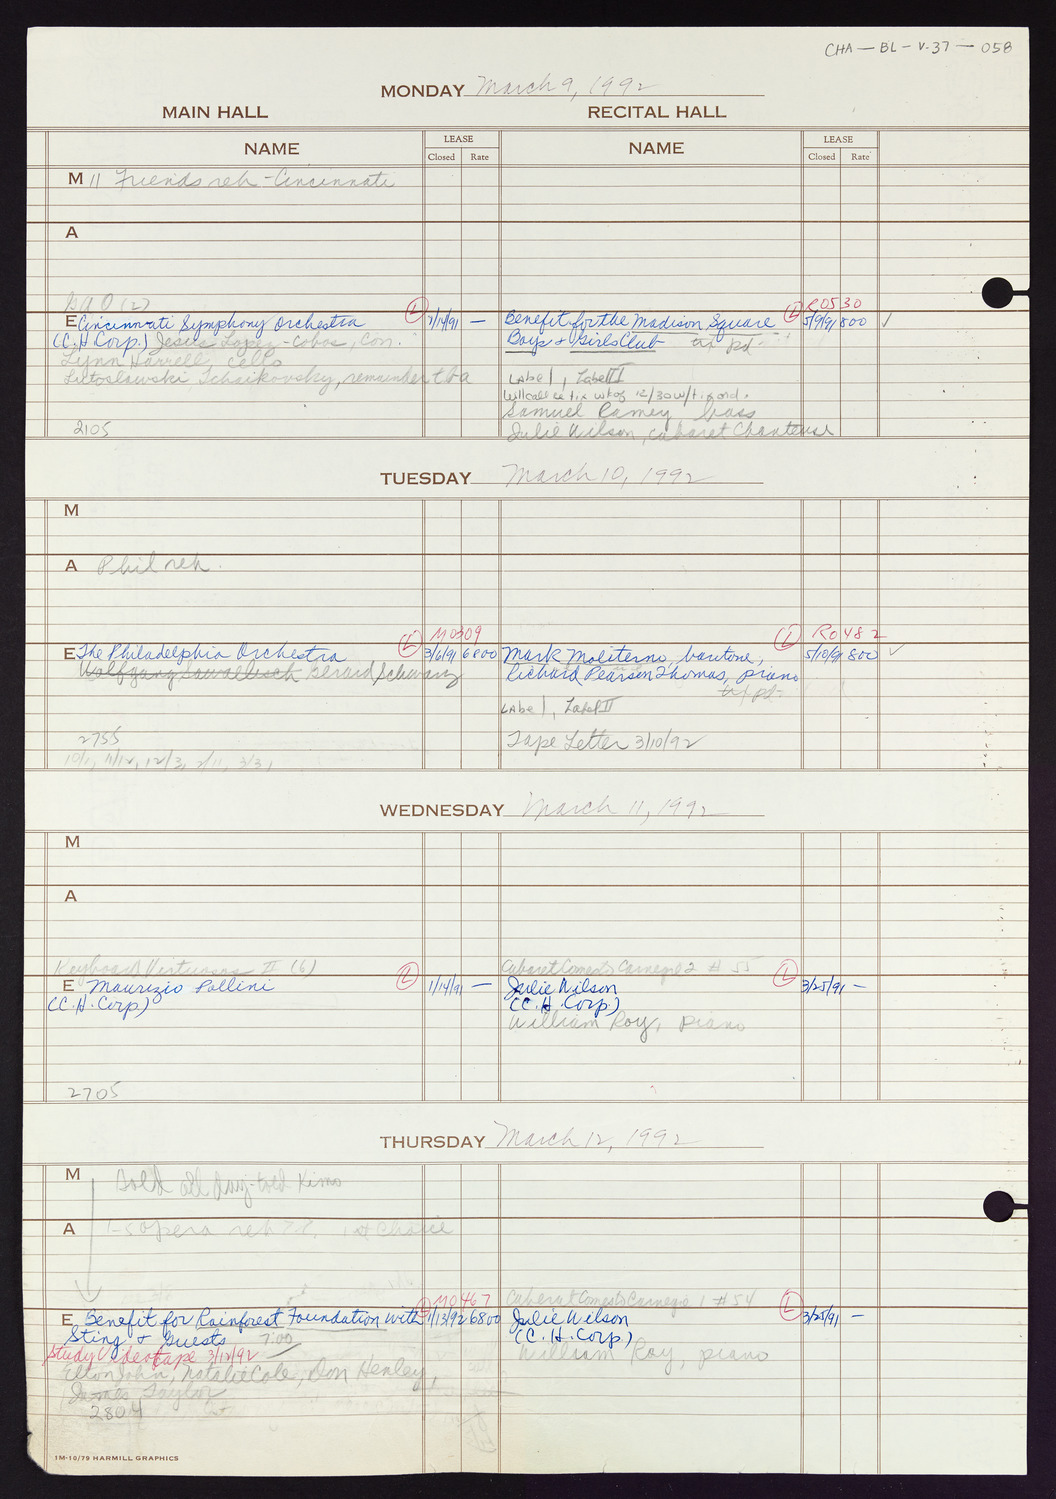 CHA - BL - V.37 - 058
MONDAY March 9, 1992
MAIN HALL RECITAL HALL
NAME LEASE NAME LEASE
Closed Rate Closed Rate
M 11 Friends reh - Cincinnati
A
(2)
R0530
E Cincinnati Symphony Orchestra L 1/14/91 —
(C.H. Corp.) Jesus Lopez-Cobos, con.
Lynn Harrell, cello
Lutoslawski, Tchaikovsky, remainder tba
2105
Benefit for the Madison Square L 5/9/91 800 ✓
Boys & Girls Club tix pd.
Label, Label II
Willcall 12/30 w/tix ord.
Samuel Ramey bass
Julie Wilson, cabaret Chanteuse
TUESDAY March 10, 1992
M
A Phil reh.
M0309 R0482
E The Philadelphia Orchestra L 3/6/91 6800
Wolfgang Sawallisch Gerard Schwarz
2755
10/1, 11/12, 12/3, 2/11, 3/31
Mark Moliterno, baritone, L 5/10/91 800 ✓
Richard Pearson Thomas, piano
tix pd.
Label, Label II
Tape Letter 3/10/92
WEDNESDAY March 11, 1992
M
A
Keyboard Virtuosos II (6)
E Maurizio Pollini L 1/14/91 —
(C.H. Corp)
2705
Cabaret Comes to Carnegie 2 # 55
Julie Wilson L 3/25/91 —
(C.H. Corp.)
William Roy, piano
THURSDAY March 12, 1992
M Sold all day - told Kimo
A 1-5 Opera reh 1st Choice
M0467
E Benefit for Rainforest Foundation with L 1/13/92 6800
Sting & Guests 7:00
Study Videotape 3/12/92
Elton John, Natalie Cole, Don Henley,
James Taylor
2804
Cabaret Comes to Carnegie 1 # 54
Julie Wilson L 3/25/91 —
(C.H. Corp.)
William Roy, piano
1M-10/79 HARMILL GRAPHICS